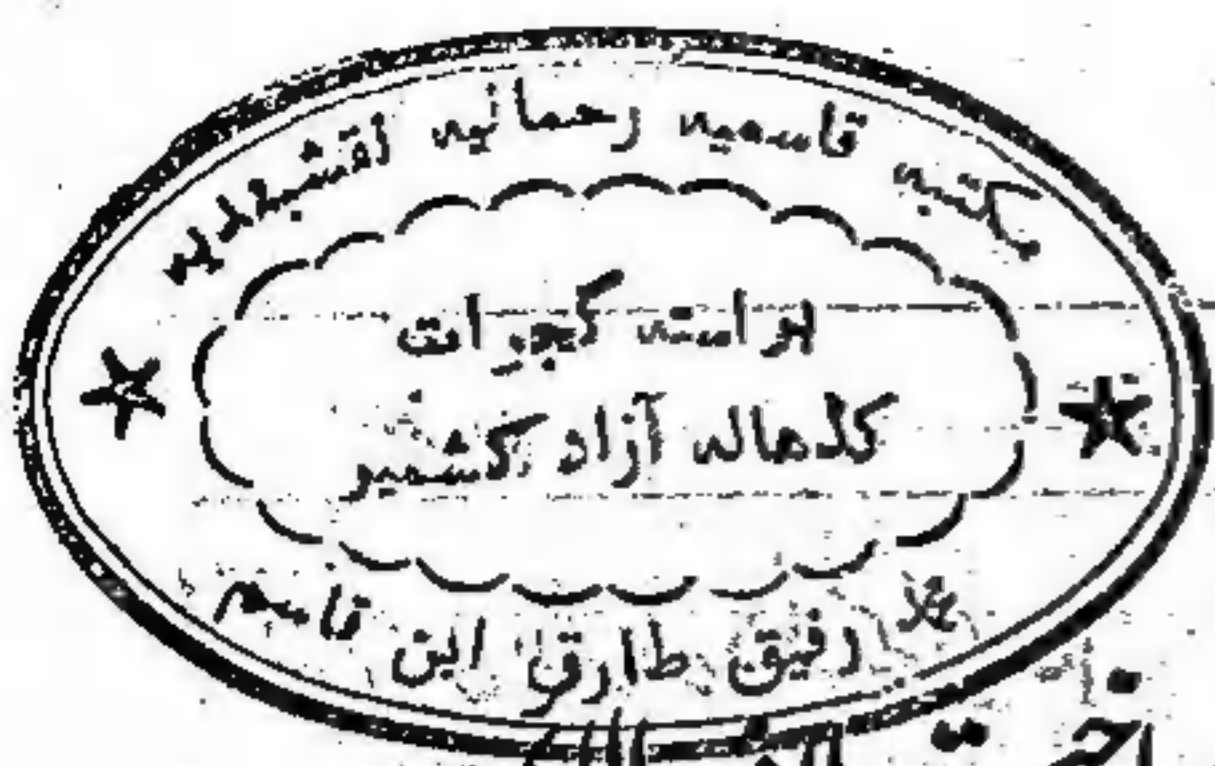 مکتبہ قاسمیہ رحمانیہ نقشبندیہ
براستہ گجرات
کلدھالہ آزاد کشمیر
محمد رفیق طارق ابن قاسم